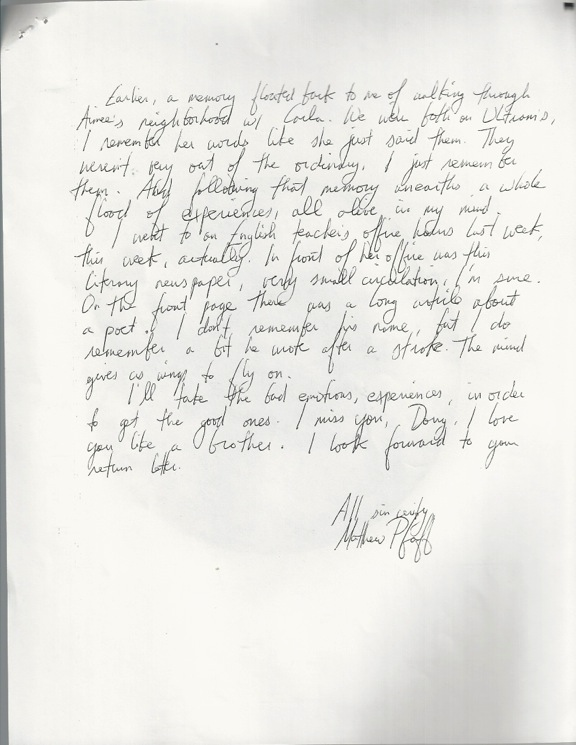 Earlier, a memory floated back to me of walking through
Aimee's neighborhood w/ Carla. We were both on Ultram's,
I remember her words like she just said them. They
weren't very out of the ordinary, I just remember
them. And following that memory unearths a whole
flood of experiences, all alive in my mind.
I went to an English teacher's office hours last week,
this week, actually. In front of her office was this
literary newspaper, very small circulation, I'm sure.
On the front page there was a long article about
a poet. I don't remember his name, but I do
remember a bit he wrote after a stroke. The mind
gives us wings to fly on.
I'll take the bad emotions, experiences, in order
to get the good ones. I miss you, Doug. I love
you like a brother. I look forward to your
return letter.
All sincerity
Mathew Pfaff